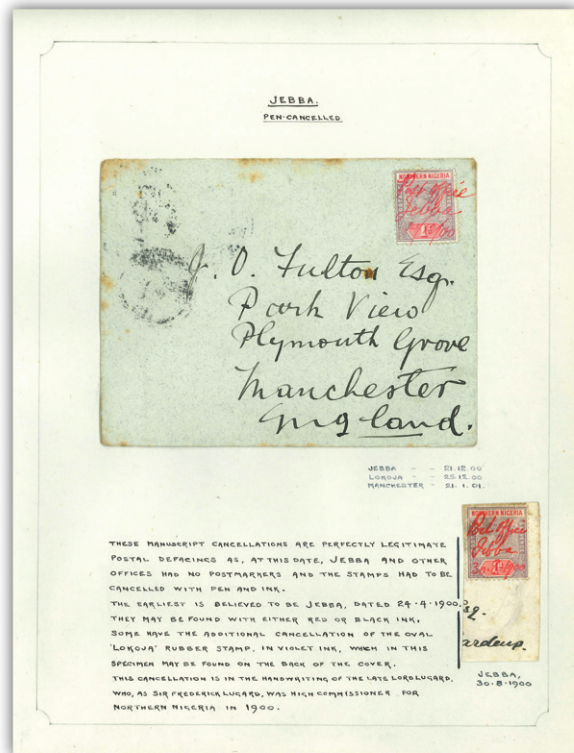 JEBBA.
PEN-CANCELLED
NORTHERN NIGERIA
Post office
Jebba
1d
J. O. Fulton Esq.
Park View
Plymouth Grove
Manchester
England.
JEBBA - - 21.12.00
LOKOJA - - 25.12.00
MANCHESTER - 21.1.01.
NORTHERN NIGERIA
Post office
Jebba
1d
sq.
ardens.
JEBBA,
30-8-1900
THESE MANUSCRIPT CANCELLATIONS ARE PERFECTLY LEGITIMATE
POSTAL DEFACINGS AS, AT THIS DATE, JEBBA AND OTHER
OFFICES HAD NO POSTMARKERS AND THE STAMPS HAD TO BE
CANCELLED WITH PEN AND INK.
THE EARLIEST IS BELIEVED TO BE JEBBA, DATED 24-4-1900.
THEY MAY BE FOUND WITH EITHER RED OR BLACK INK.
SOME HAVE THE ADDITIONAL CANCELLATION OF THE OVAL
'LOKOJA' RUBBER STAMP, IN VIOLET INK, WHICH IN THIS
SPECIMEN MAY BE FOUND ON THE BACK OF THE COVER.
THIS CANCELLATION IS IN THE HANDWRITING OF THE LATE LORD LUGARD,
WHO, AS SIR FREDERICK LUGARD, WAS HIGH COMMISSIONER FOR
NORTHERN NIGERIA IN 1900.